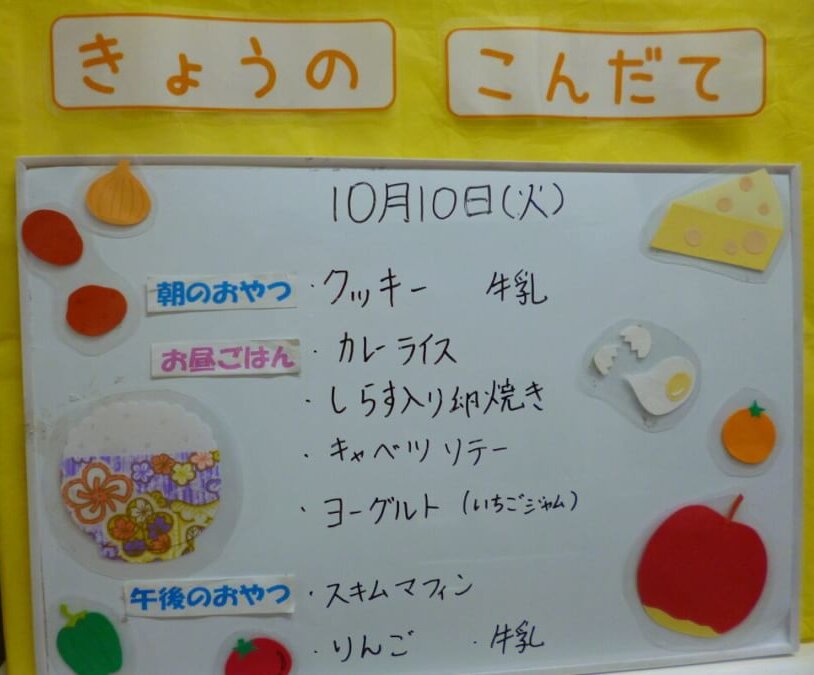 きょうの こんだて
10月10日(火)
朝のおやつ ・クッキー 牛乳
お昼ごはん ・カレーライス
・しらす入り卵焼き
・キャベツソテー
・ヨーグルト(いちごジャム)
午後のおやつ ・スキムマフィン
・りんご ・牛乳